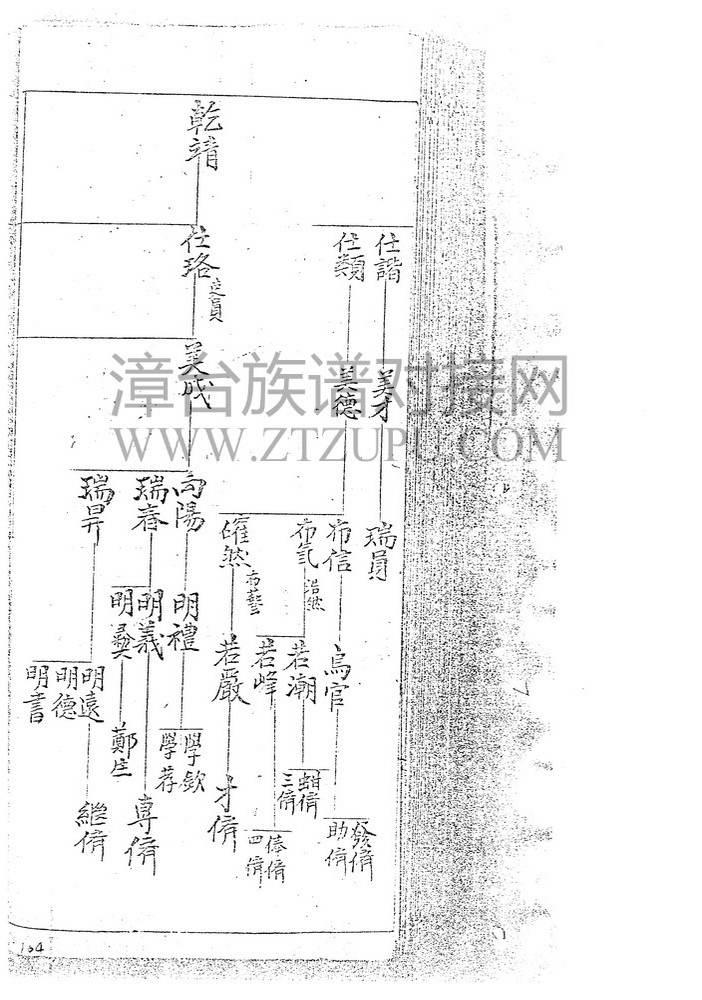 乾靖
仕諧
仕類
仕珞
美才
美德
美成
瑞員
布信
布氣
浩然
確然
布藝
向陽
瑞春
瑞昇
烏官
若潮
若峰
若嚴
明禮
明義
明彝
明遠
明德
明書
發儕
助儕
蚶儕
三儕
俸儕
四儕
才儕
學欽
學荐
專儕
鄭生
繼儕
漳台族谱对接网
WWW.ZTZUPU.COM
134